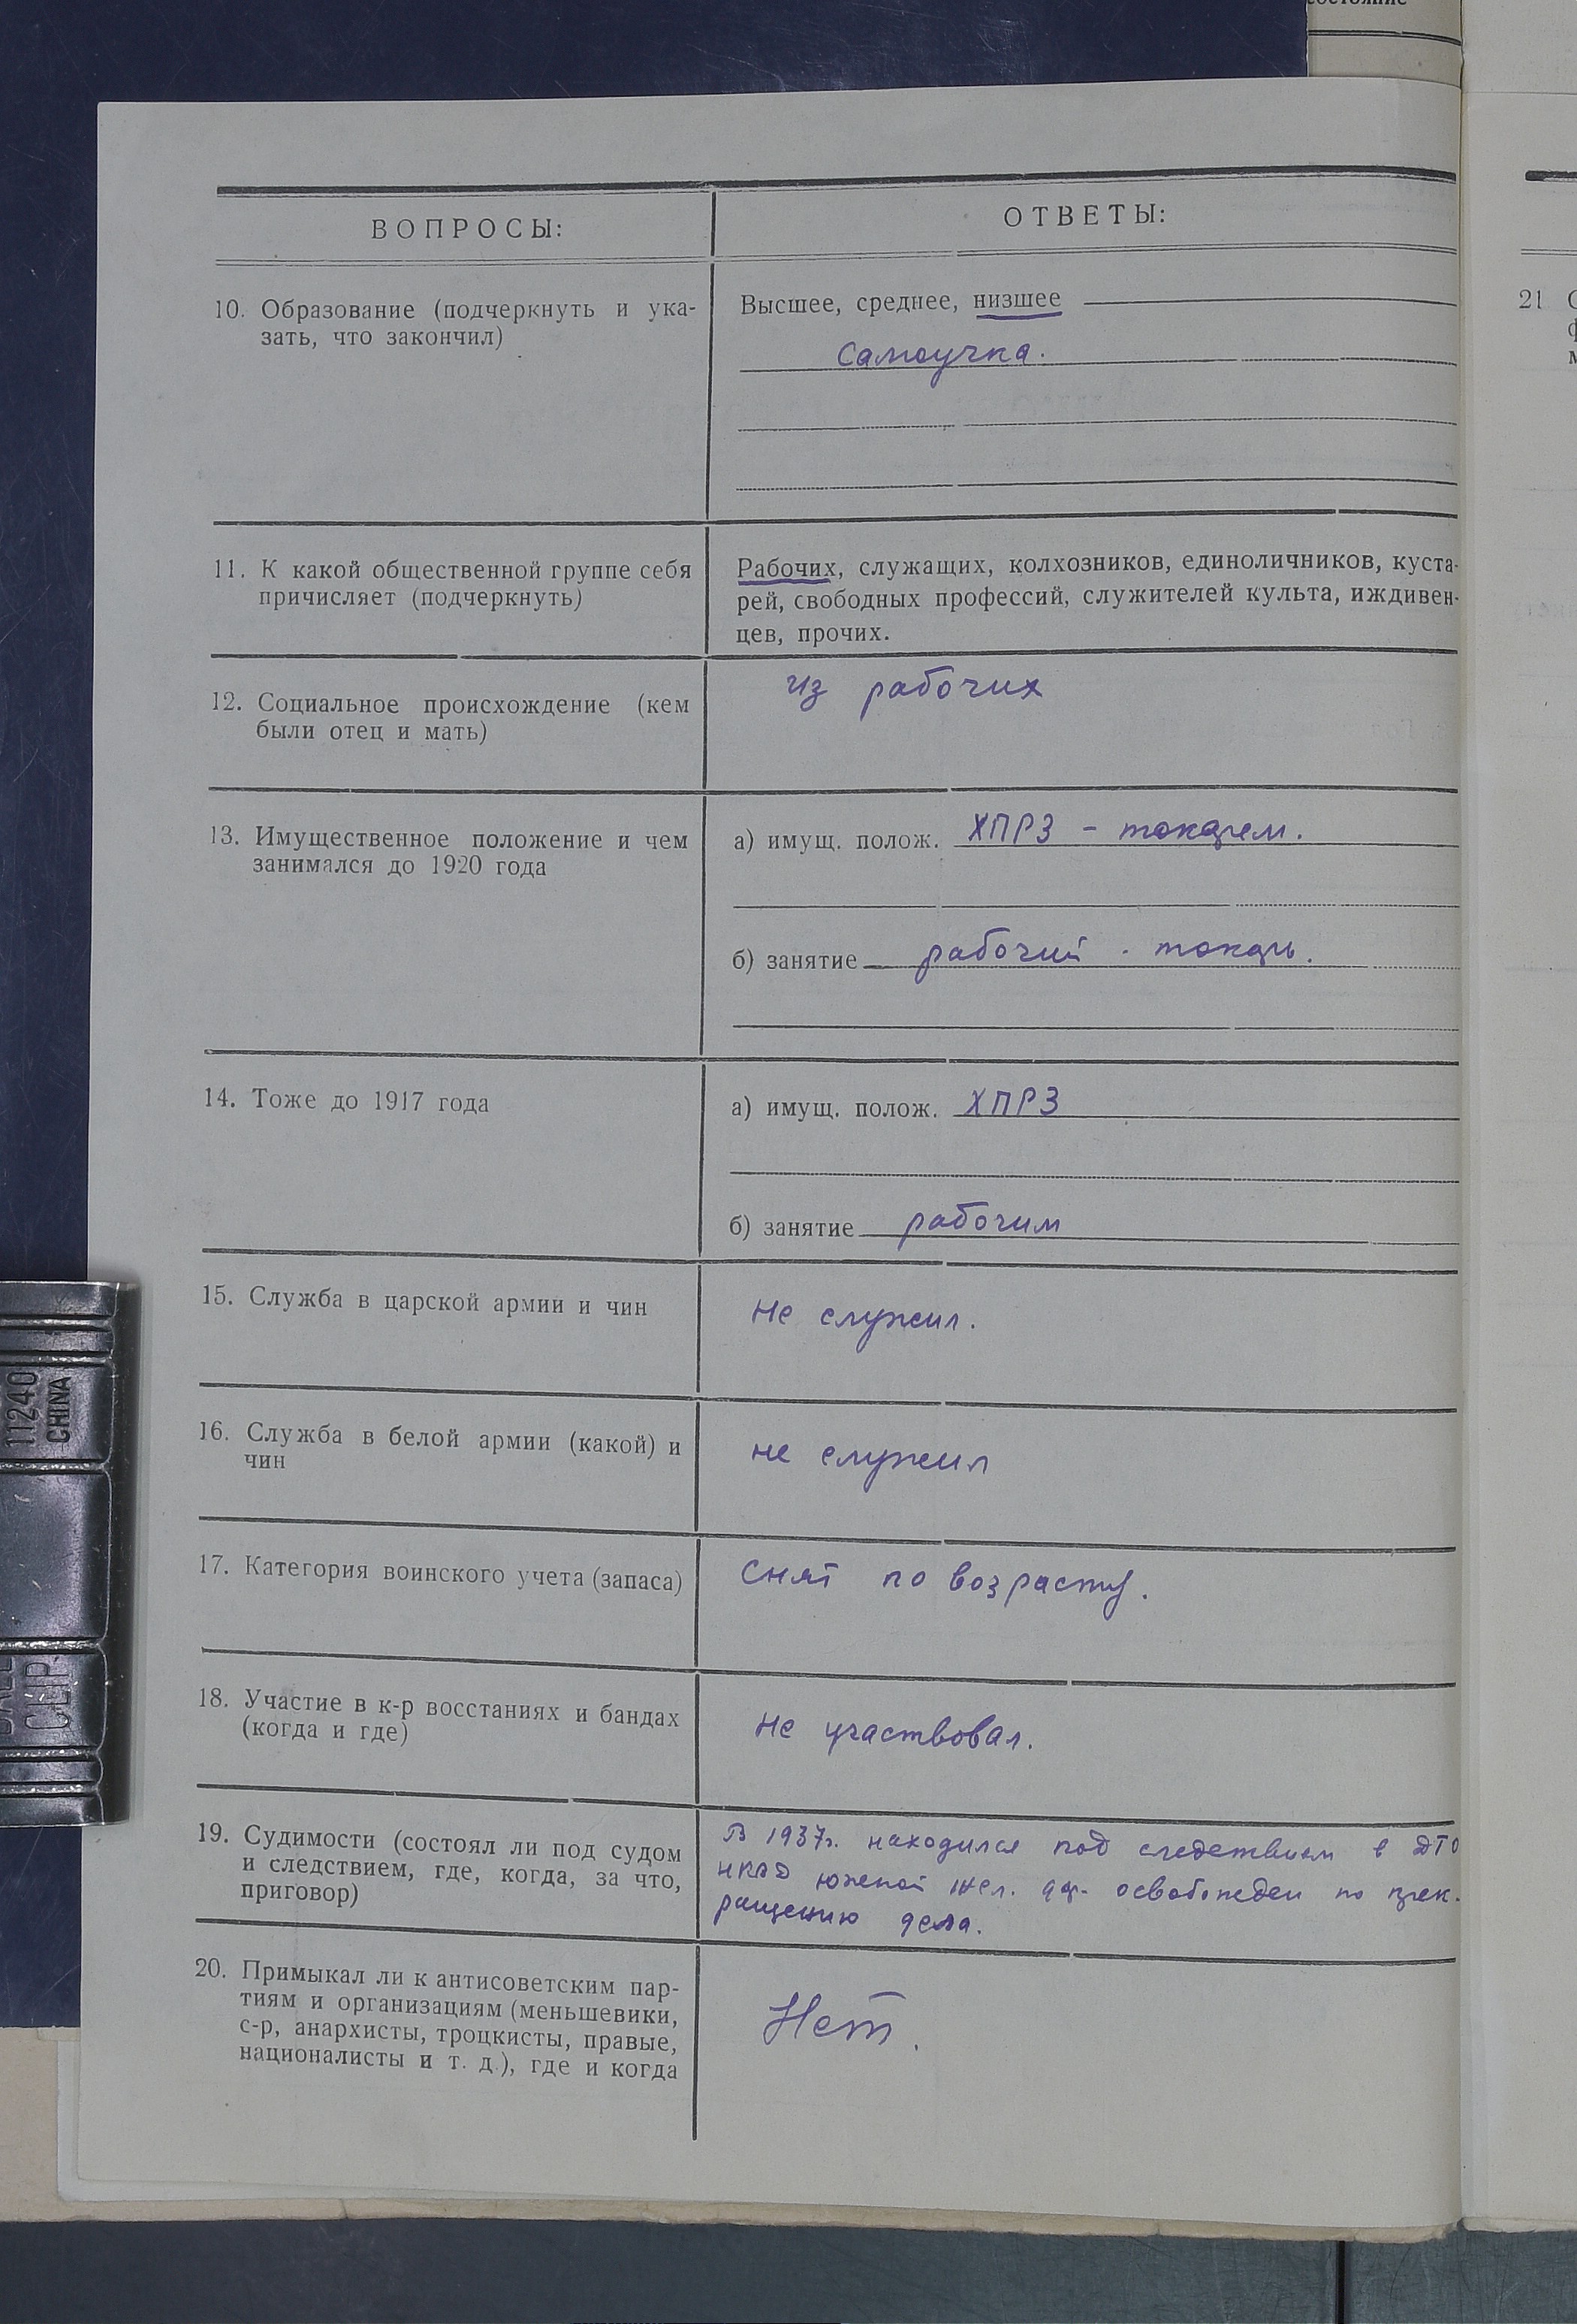 состояние
ВОПРОСЫ:
ОТВЕТЫ:
10. Образование (подчеркнуть и ука-
зать, что закончил)
Высшее, среднее, низшее
Самоучка.
11. К какой общественной группе себя
причисляет (подчеркнуть)
Рабочих, служащих, колхозников, единоличников, куста-
рей, свободных профессий, служителей культа, иждивен-
цев, прочих.
12. Социальное происхождение (кем
были отец и мать)
из рабочих
13. Имущественное положение и чем
занимался до 1920 года
а) имущ. полож. ХПРЗ - токарем.
б) занятие рабочий - токарь.
14. Тоже до 1917 года
а) имущ. полож. ХПРЗ
б) занятие рабочим
15. Служба в царской армии и чин
Не служил.
16. Служба в белой армии (какой) и
чин
не служил
17. Категория воинского учета (запаса)
Снят по возрасту.
18. Участие в к-р восстаниях и бандах
(когда и где)
Не участвовал.
19. Судимости (состоял ли под судом
и следствием, где, когда, за что,
приговор)
В 1937г. находился под следствием в ДТО
НКВД южной жел. дор. освобожден по прек-
ращению дела.
20. Примыкал ли к антисоветским пар-
тиям и организациям (меньшевики,
с-р, анархисты, троцкисты, правые,
националисты и т. д.), где и когда
Нет.
21
11240
CHINA
CLIP